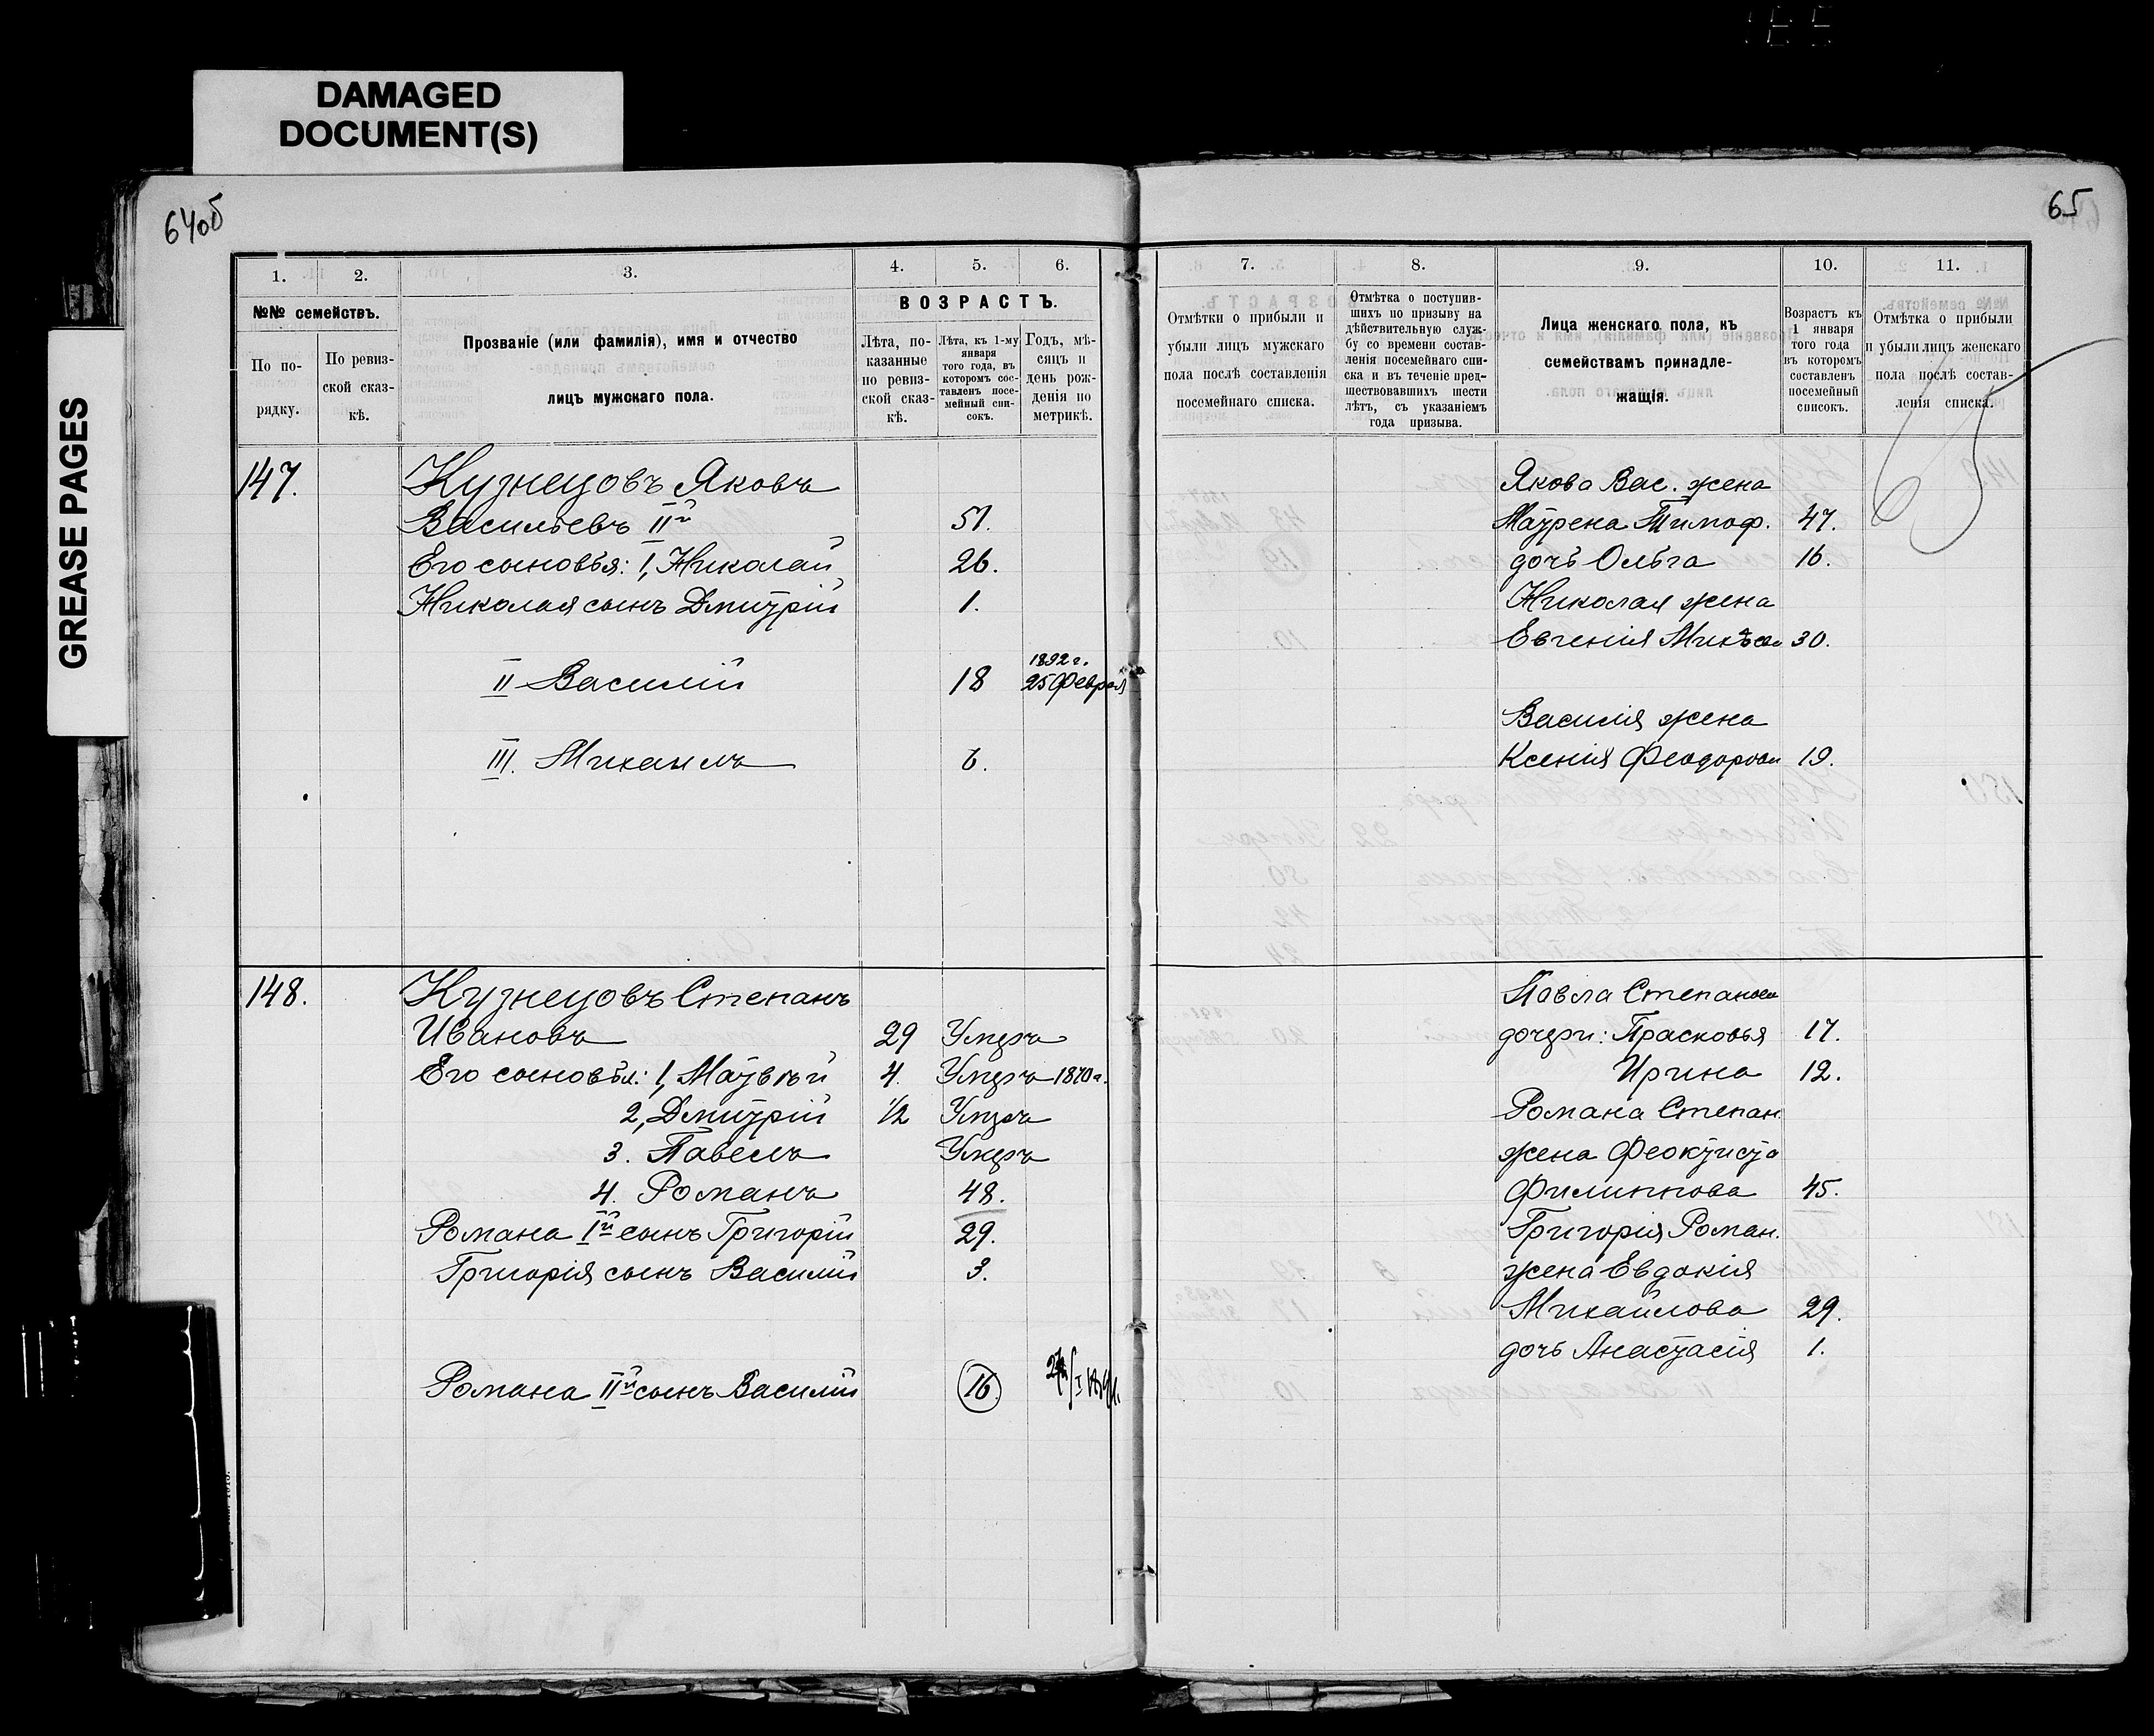 DAMAGED
DOCUMENT(S)
GREASE PAGES
64об
65
1. 2. 3. 4. 5. 6.
№№ семействъ.
По по-
рядку.
По ревиз-
ской сказ-
кѣ.
Прозваніе (или фамилія), имя и отчество
лицъ мужскаго пола.
ВОЗРАСТЪ.
Лѣта, по-
казанные
по ревиз-
ской сказ-
кѣ.
Лѣта, къ 1-му
января
того года, въ
которомъ сос-
тавленъ посе-
мейный спи-
сокъ.
Годъ, мѣ-
сяцъ и
день рож-
денія по
метрикѣ.
147.
Кузнецовъ Яковъ
Васильевъ IIй 51.
Его сыновья: 1, Николай 26.
Николая сынъ Дмитрій 1.
II Василій 18 1892 г.
25 Февраля
III. Михаилъ 6.
148. Кузнецовъ Степанъ
Ивановъ 29 Умеръ
Его сыновья: 1, Матвѣй 4. Умеръ 1870 г.
2, Дмитрій 1/2 Умеръ
3. Павелъ Умеръ
4. Романъ 48.
Романа Iй сынъ Григорій 29.
Григорія сынъ Василій 3.
Романа IIй сынъ Василій 16
7. 8. 9. 10. 11.
Отмѣтки о прибыли и
убыли лицъ мужскаго
пола послѣ составленія
посемейнаго списка.
Отмѣтка о поступив-
шихъ по призыву на
дѣйствительную служ-
бу со времени состав-
ленія посемейнаго спи-
ска и въ теченіе пред-
шествовавшихъ шести
лѣтъ, съ указаніемъ
года призыва.
Лица женскаго пола, къ
семействамъ принадле-
жащія.
Возрастъ къ
1 января
того года
въ которомъ
составленъ
посемейный
списокъ.
Отмѣтка о прибыли
и убыли лицъ женскаго
пола послѣ состав-
ленія списка.
65
Якова Вас. жена
Матрена Тимоф. 47.
дочь Ольга 16.
Николая жена
Евгенія 30.
Василія жена
Ксенія Феодоров 19.
Павла Степанова
дочери: Прасковья 17.
Ирина 12.
Романа Степан.
жена Феоктиста
Филиппова 45.
Григорія Роман.
жена Евдокія
Михайлова 29.
дочь Анастасія 1.